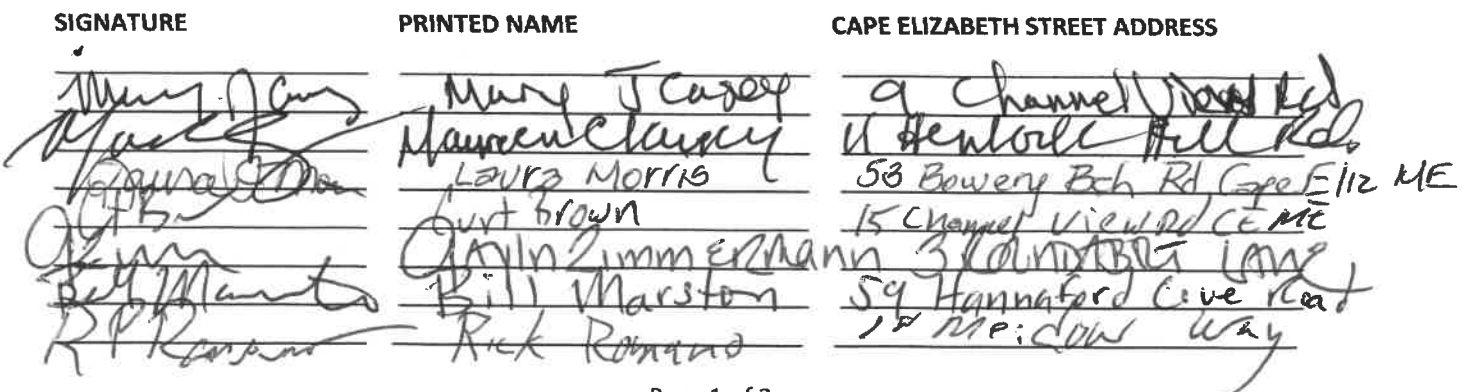 SIGNATURE PRINTED NAME CAPE ELIZABETH STREET ADDRESS
Mary J Casey 9 Channel View Rd
Maureen Clancy 11 Hemlock Hill Rd.
Laura Morris 53 Bowery Bch Rd Cape Eliz ME
Curt Brown 15 Channel View Rd CE ME
GAylin Zimmermann 3 ROUNDABOUT LANE
Bill Marston 59 Hannaford Cove road
R P Romano Rick Romano Meadow Way